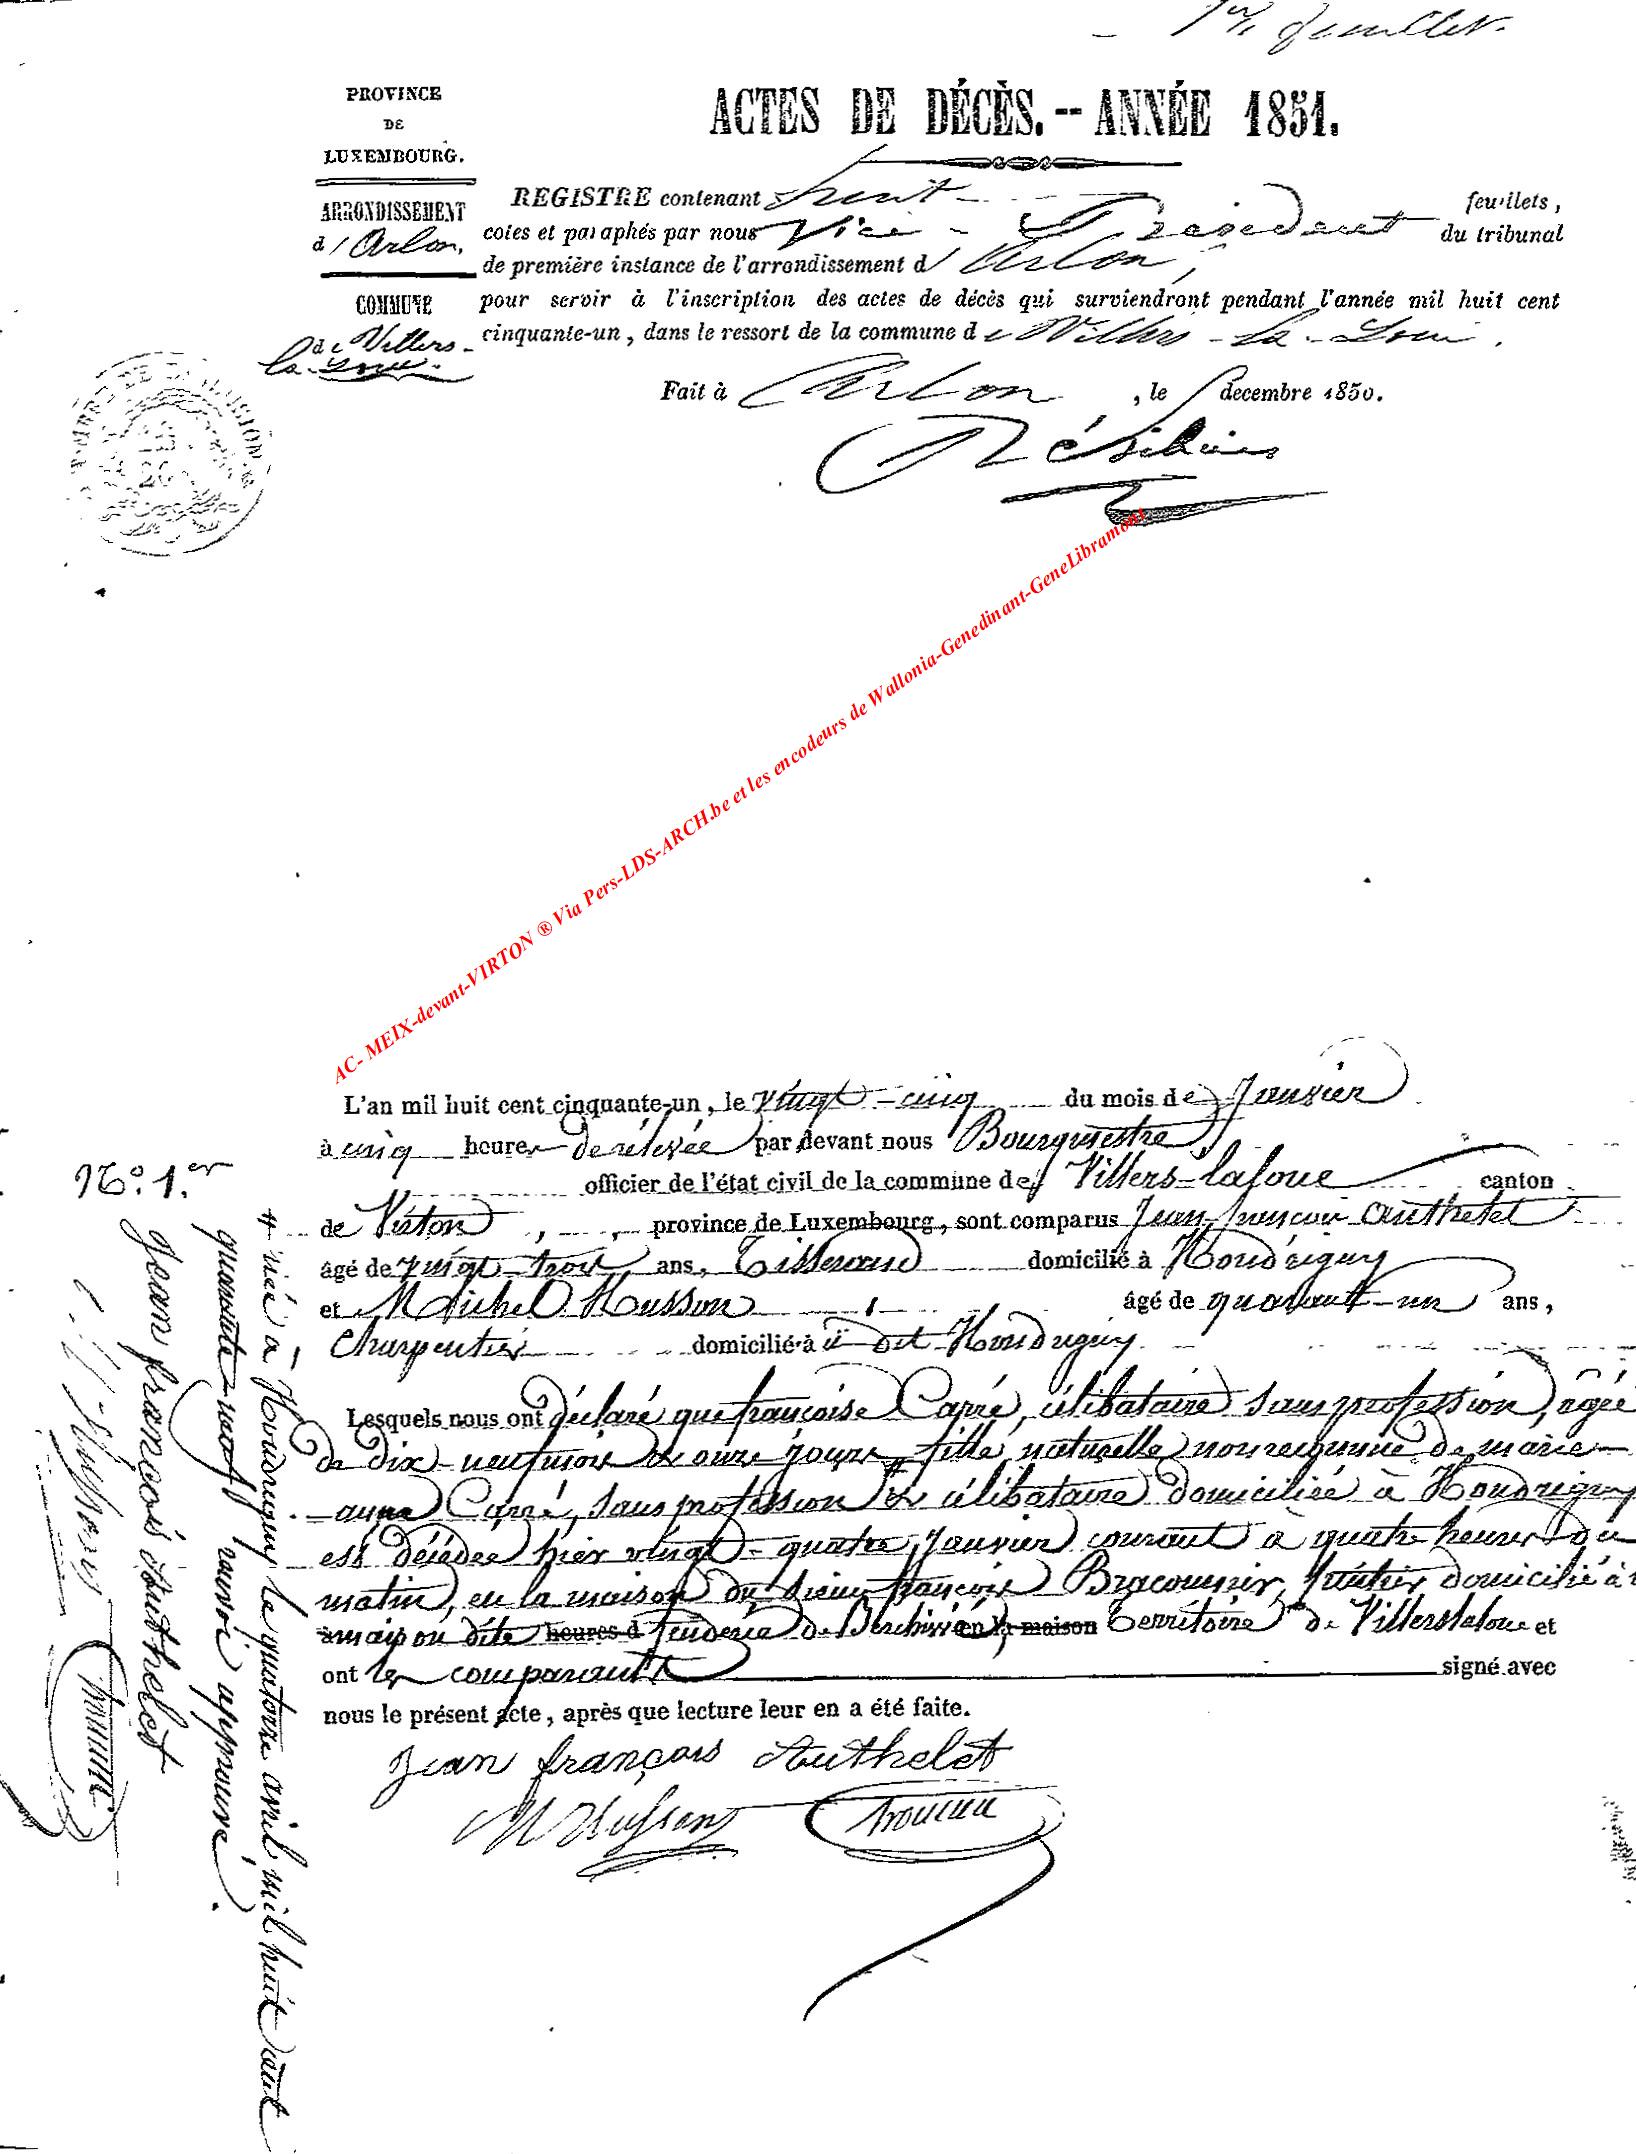 1er feuillet.
PROVINCE
DE
LUXEMBOURG.
ARRONDISSEMENT
d'Arlon,
COMMUNE
de Villers-
la-Loue.
ACTES DE DÉCÈS. -- ANNÉE 1851.
REGISTRE contenant huit feuillets,
cotes et paraphés par nous Vice-Président du tribunal
de première instance de l'arrondissement d'Arlon,
pour servir à l'inscription des actes de décès qui surviendront pendant l'année mil huit cent
cinquante-un, dans le ressort de la commune de Villers-la-Loue.
Fait à Arlon, le decembre 1850.
AC- MEIX-devant-VIRTON ® Via Pers-LDS-ARCH.be et les encodeurs de Wallonia-Genedinant-GeneLibramont
No. 1.er
L'an mil huit cent cinquante-un, le vingt-cinq du mois de Janvier
à cinq heures de relevée par devant nous Bourgmestre
officier de l'état civil de la commune de Villers-laloue canton
de Virton, province de Luxembourg, sont comparus Jean françois Authelet
âgé de vingt-trois ans, Tisserand domicilié à Houdrigny
et Michel Husson âgé de quarante-un ans,
Charpentier domicilié à Houdrigny
Lesquels nous ont déclaré que françoise Capré, célibataire sans profession, agée
de dix-neuf mois & onze jours, fille naturelle non reconnue de marie-
anne Capré, sans profession & célibataire domiciliée à Houdrigny
est décédée hier vingt-quatre Janvier courant à quatre heures du
matin, en la maison du sieur françois Braconnier, domicilié à
maison dite heures d en la maison Territoire de Villerslaloue et
ont les comparants signé avec
nous le présent acte, après que lecture leur en a été faite.
Jean françois Authelet
M Husson
+ née à Houdrigny le quatorze avril mil huit cent
quarante-neuf renvoi approuvé.
Jean françois Authelet
M Husson